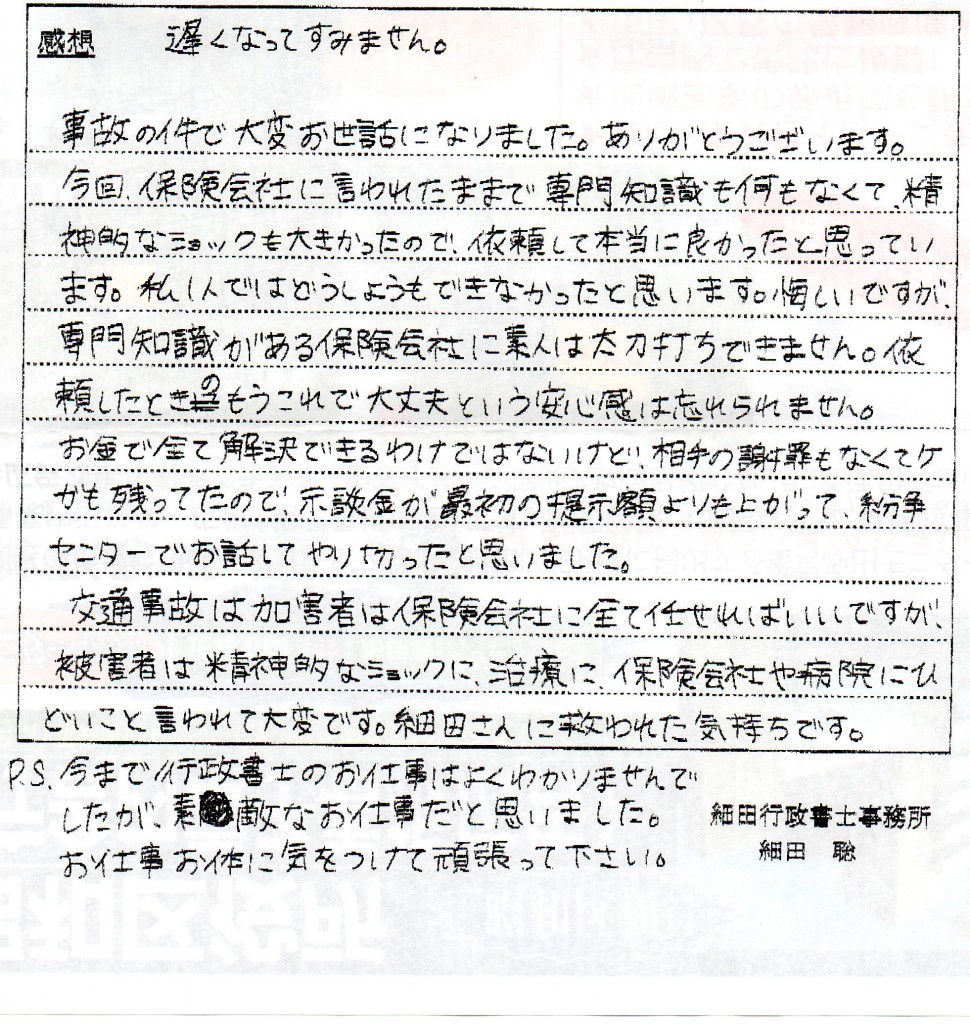 感想 遅くなってすみません。
事故の件で大変お世話になりました。ありがとうございます。
今回、保険会社に言われたままで専門知識も何もなくて、精
神的なショックも大きかったので、依頼して本当に良かったと思ってい
ます。私1人ではどうしようもできなかったと思います。悔しいですが、
専門知識がある保険会社に素人は太刀打ちできません。依
頼したときのもうこれで大丈夫という安心感は忘れられません。
お金で全て解決できるわけではないけど、相手の謝罪もなくてケ
ガも残ってたので、示談金が最初の提示額よりも上がって、紛争
センターでお話してやり切ったと思いました。
交通事故は加害者は保険会社に全て任せればいいですが、
被害者は精神的なショックに、治療に、保険会社や病院にひ
どいこと言われて大変です。細田さんに救われた気持ちです。
P.S. 今まで行政書士のお仕事はよくわかりませんで
したが、素敵なお仕事だと思いました。
お仕事お体に気をつけて頑張って下さい。
細田行政書士事務所
細田 聡